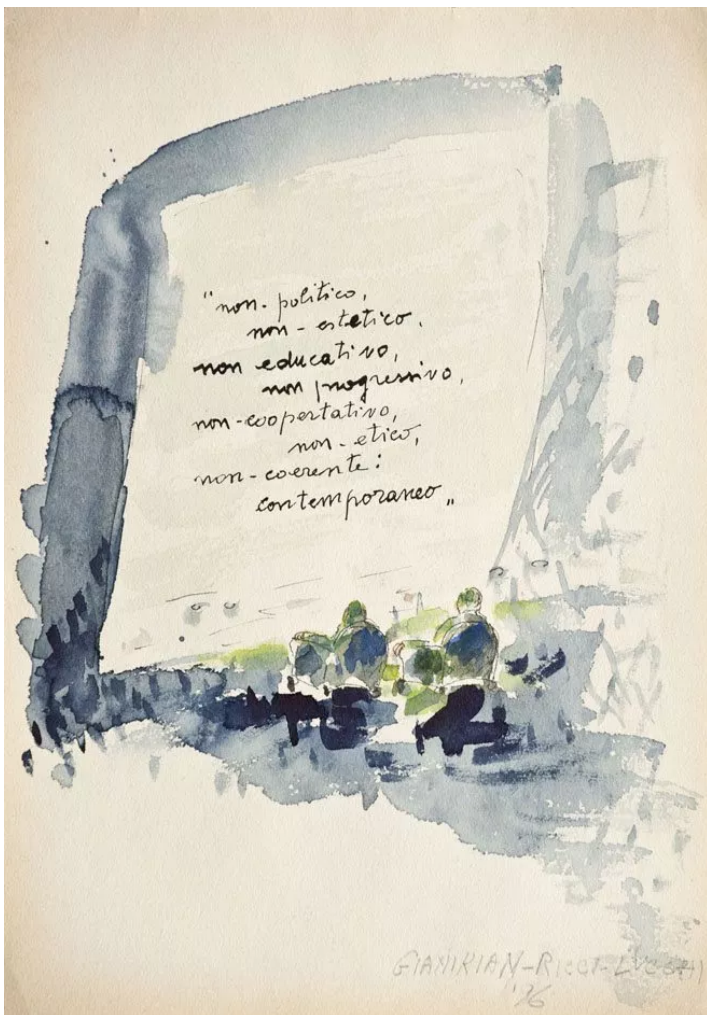 "non-politico,
non-estetico.
non educativo,
non progressivo,
non-coopertativo,
non-etico,
non-coerente:
contemporaneo"
GIANIKIAN-RICCI-LUCCHI
'96